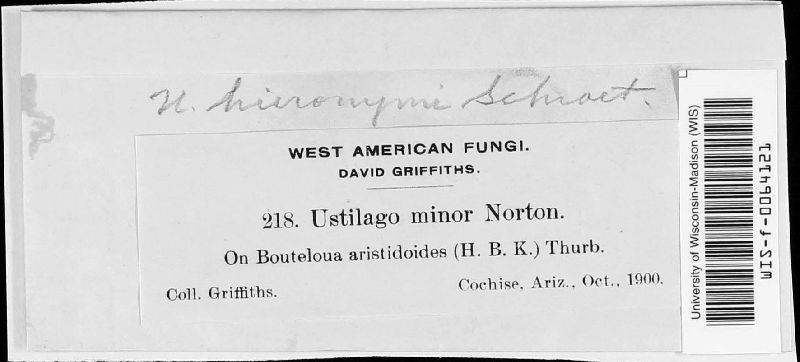 U. hieronymi Schroet.
WEST AMERICAN FUNGI.
DAVID GRIFFITHS.
218. Ustilago minor Norton.
On Bouteloua aristidoides (H. B. K.) Thurb.
Coll. Griffiths. Cochise, Ariz., Oct., 1900.
University of Wisconsin-Madison (WIS)
WIS-f-0064121